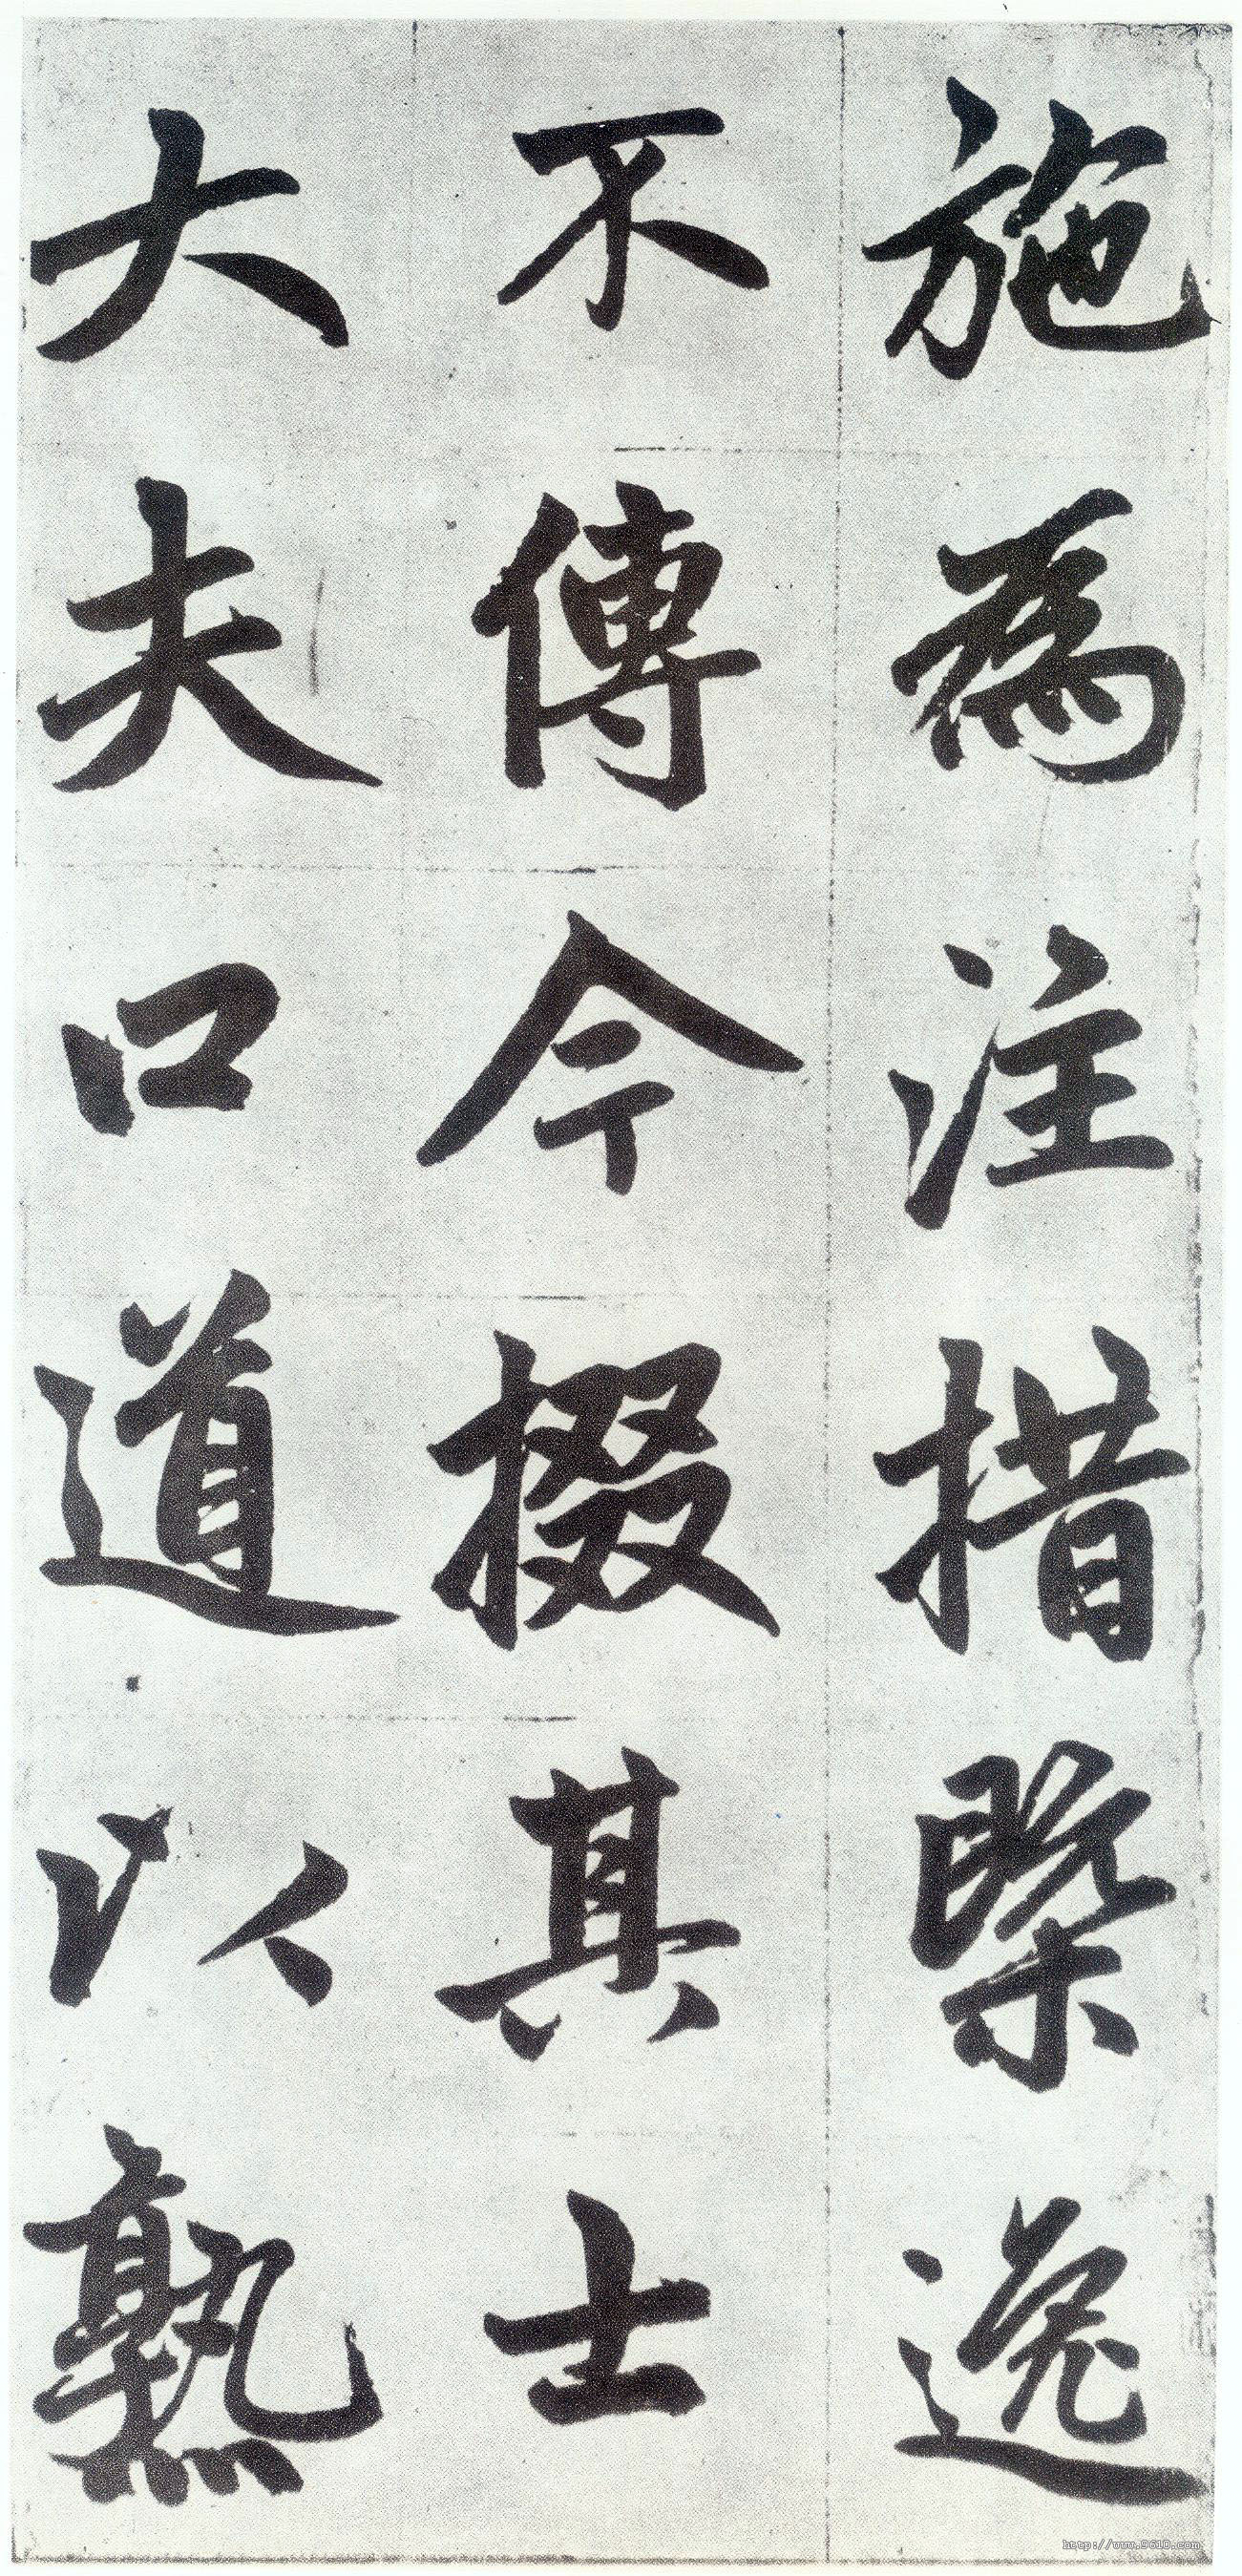 施為注措槩逸
不傳今掇其士
大夫口道以熟
http://www.9610.com